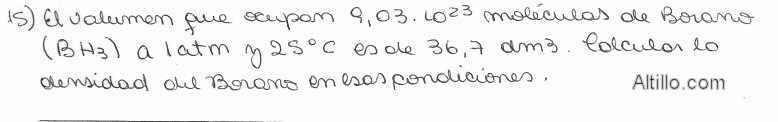 15) El volumen que ocupan 9,03.10²³ moléculas de Borano
(BH₃) a 1 atm y 25°C es de 36,7 dm3. Calcular la
densidad del Borano en esas condiciones.
Altillo.com